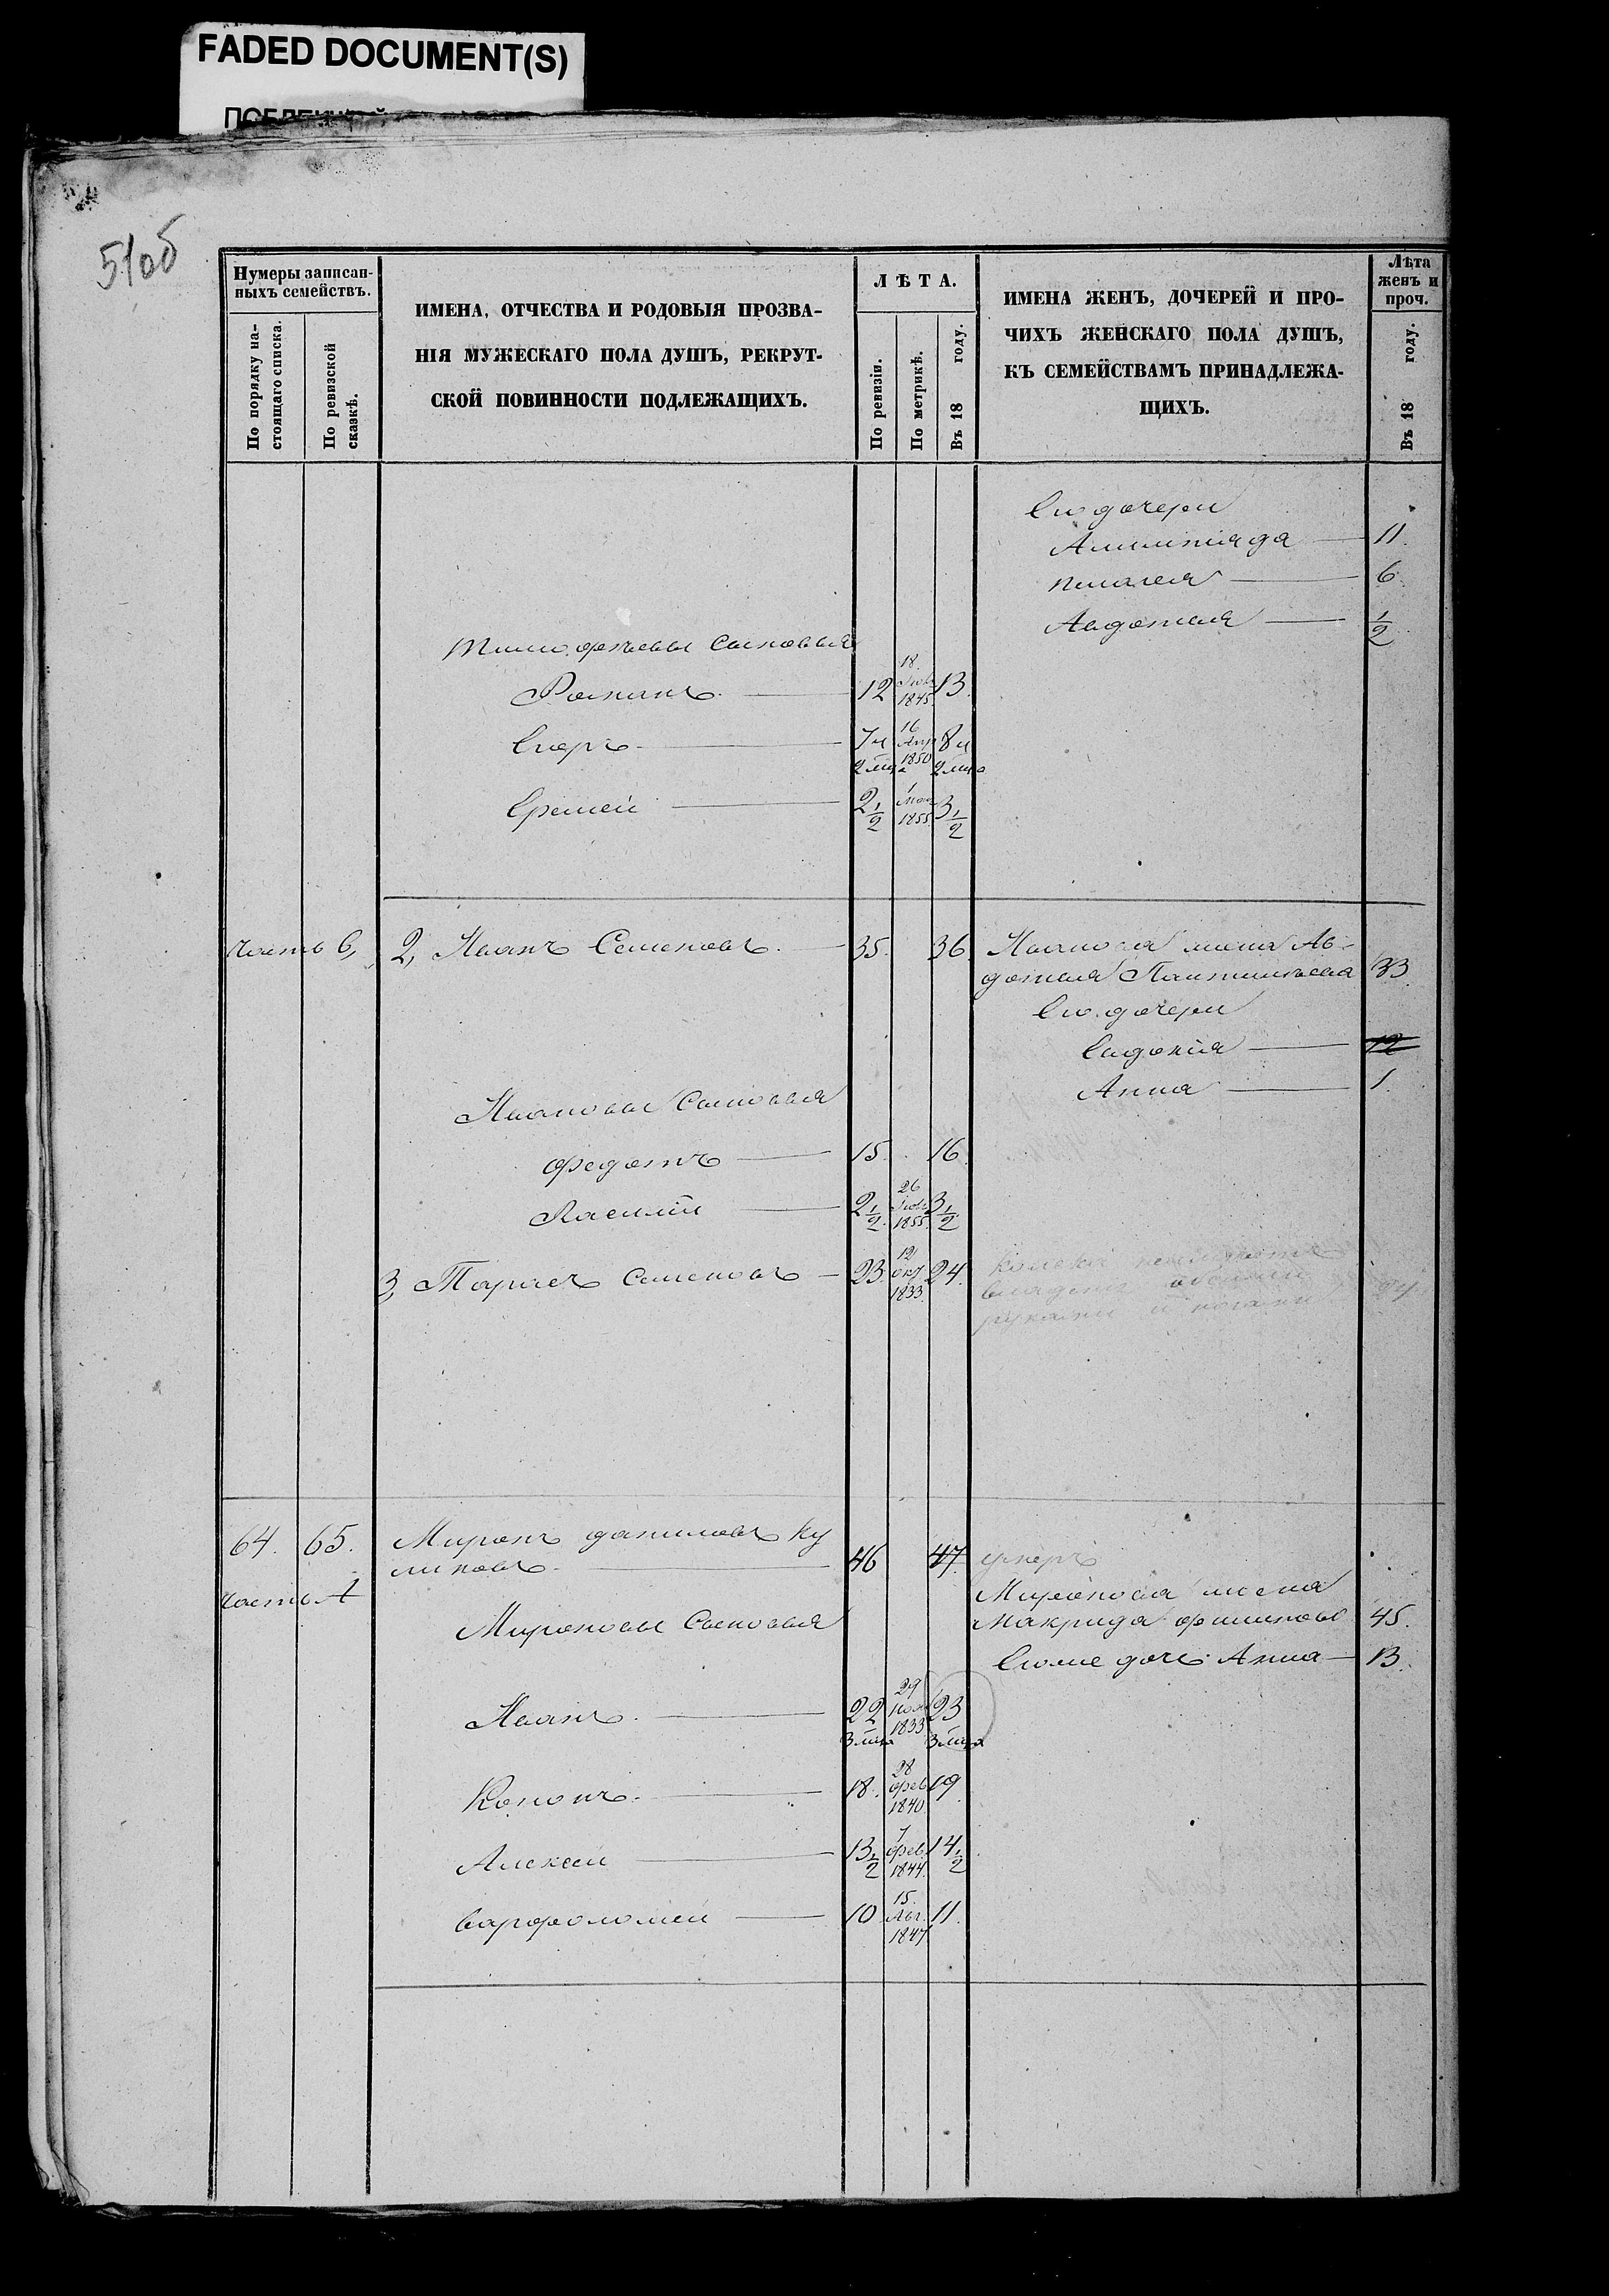 FADED DOCUMENT(S)
51об
Нумеры записан-
ныхъ семействъ.
По порядку на-
стоящаго списка.
По ревизской
сказкѣ.
ИМЕНА, ОТЧЕСТВА И РОДОВЫЯ ПРОЗВА-
НІЯ МУЖЕСКАГО ПОЛА ДУШЪ, РЕКРУТ-
СКОЙ ПОВИННОСТИ ПОДЛЕЖАЩИХЪ.
ЛѢТА.
По ревизіи.
По метрикѣ.
Въ 18 году.
ИМЕНА ЖЕНЪ, ДОЧЕРЕЙ И ПРО-
ЧИХЪ ЖЕНСКАГО ПОЛА ДУШЪ,
КЪ СЕМЕЙСТВАМЪ ПРИНАДЛЕЖА-
ЩИХЪ.
Лѣта
женъ и
проч.
Въ 18 году.
Его дочери
Алимпіяда 11.
Пелагея 6.
Авдотья 1/2
Тимофѣевы сыновья
Романъ 12 18 1845 13.
Егоръ 7 ½ 16 Апр 1850 8 ½
2 мца 2 мца
Еремей 2 1/2 1 мая 1855 3 1/2
часть 6, 2, Иванъ Семеновъ 35. 36. Иванова жена Ав-
дотья Пантилѣева 33.
Его дочери
Евдокія 12
Анна 1.
Ивановы Сыновья
Федотъ 15. 16
Василій 2 1/2 26 1855. 3 1/2
3, Тарасъ Семеновъ 23. 12 Окт 1833. 24.
владеитъ обеими
руками и ногами
64. 65. Миронъ Даниловъ Ку
ликовъ 46 47. умеръ
часть А
Миронова жена
Мироновы Сыновья Макрида Филипова 45.
Его же дочь Анна 13.
Иванъ 22 29 Ноя 1833 23
3 мца 3 мца
Кононъ 18. 28 Фев 1840. 19
Алексей 13 1/2 7 Фев. 1844. 14 1/2
Варфоломей 10 15. Авг. 1847 11.